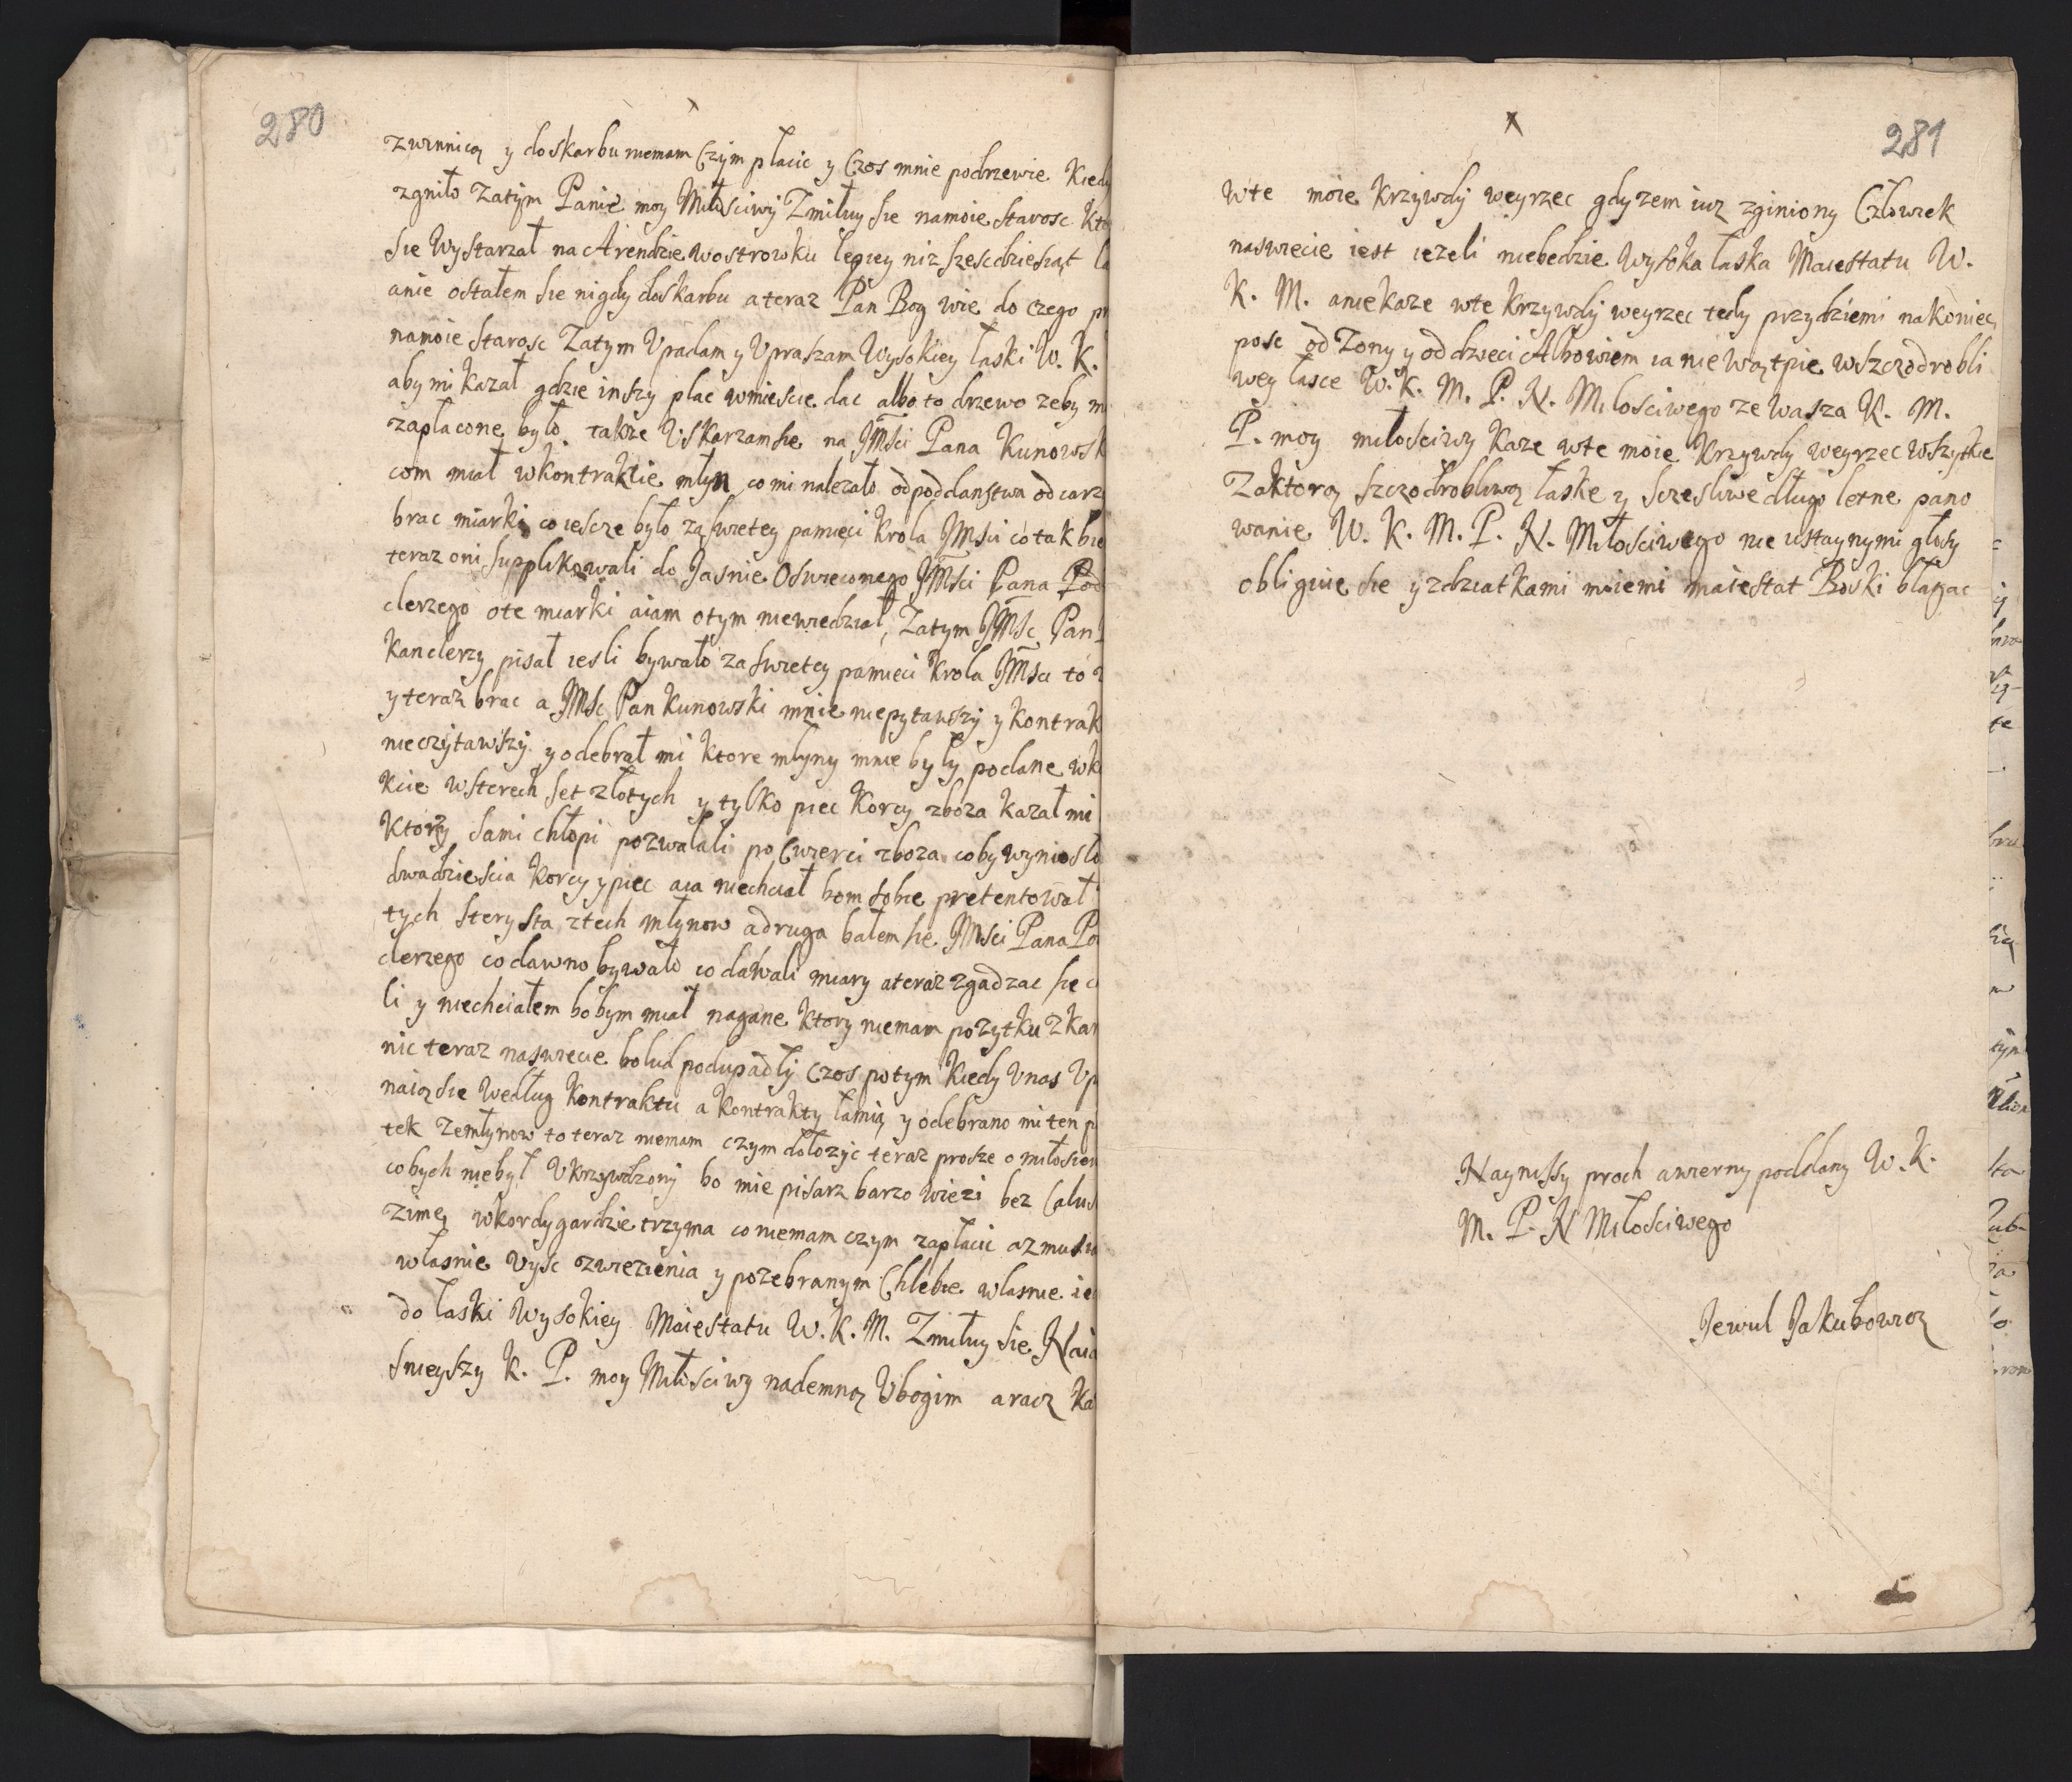 280
zwinnicą y doskarbu niemam Czym płacic y Czos mnie podrzewie Kiedy
zgniło Zatym Panie moy Miłosciwy Zmiłuy sie namoie starosc
sie Wystarzał na Arendzie wostrowku lepiey niz szescdziesiąt
anie ostałem sie nigdy doskarbu a teraz Pan Bog wie do czego
namoie starosc Zatym Upadam y Upraszam Wysokiey łaski W. K.
aby mi kazał gdzie inszy plac wmiescie dac albo to drzewo zeby
zapłacone było takze Uskarzam sie na JMsci Pana
com miał wkontrakcie młyn co mi nalezało odpoddanstwa od
brac miarki co iescze było za swietey pamięci Krola JMsci co tak
teraz oni supplikowali do Jasnie Oswieconego JMsci Pana Pod
clerzego ote miarki aiam otym niewiedział, Zatym JMsc Pan
Kanclerzy pisał iesli bywało za swietey pamieci Krola JMsci to
y teraz brac a JMsc Pan Kunowski mnie niepytawszy y Kontrak
nieczytawszy y odebrał mi ktore młyny mnie były podane
kcie wsterech set złotych y tylko piec Korcy zboza kazał mi
Ktorzy sami chłopi pozwalali po Cwierci zboza coby wyniosło
dwadziescia korcy ypiec aia niechciał bom sobie pretentował
tych sterysta ztech młynow adruga bałem sie JMsci Pana
clerzego co dawno bywało co dawali miary ateraz zgadzac sie
li y niechciałem bo bym miał nagane ktory niemam pozytku
nic teraz naswiecie bolud podupadły Czos potym Kiedy Unas
naią sie Według Kontraktu a kontrakty łamią y odebrano mi ten
tek zemłynow to teraz niemam czym dołozyc teraz prosze o
cobych niebył Ukrzywdzony bo mie pisarz barzo wiezi bez
zimę wkordygardzie trzyma co niemam czym zapłacic
własnie Uysc zwiezienia y pozebranym Chlebie własnie
do łaski Wysokiey Maiestatu W. K. M. Zmiłuy sie
snieyszy K. P. moy Miłosciwy nademną Ubogim a racz
281
wte moie krzywdy weyrzec gdyzem iuz zginiony Człowiek
naswiecie iest iezeli niebedzie Wysoka łaska Maiestatu W.
K. M. aniekaze wte krzywdy weyrzec tedy przydziemi nakoniec
posc od Zony y od dzieci Albowiem ia nie wątpie wszczodrobli
wey łasce W. K. M. P. N. Miłosciwego ze Wasza K. M.
P. moy miłosciwy Kaze wte moie Krzywdy weyrzec wszytkie
Zaktorą szczodrobliwą łaske y sczesliwe długo letne pano
wanie W. K. M. P. N. Miłosciwego nie ustaynymi głosy
obliguie sie yzdziatkami moiemi maiestat Boski błagac
Naynissy proch awierny poddany W. K.
M. P. N Miłosciwego
Jewul Jakubowicz